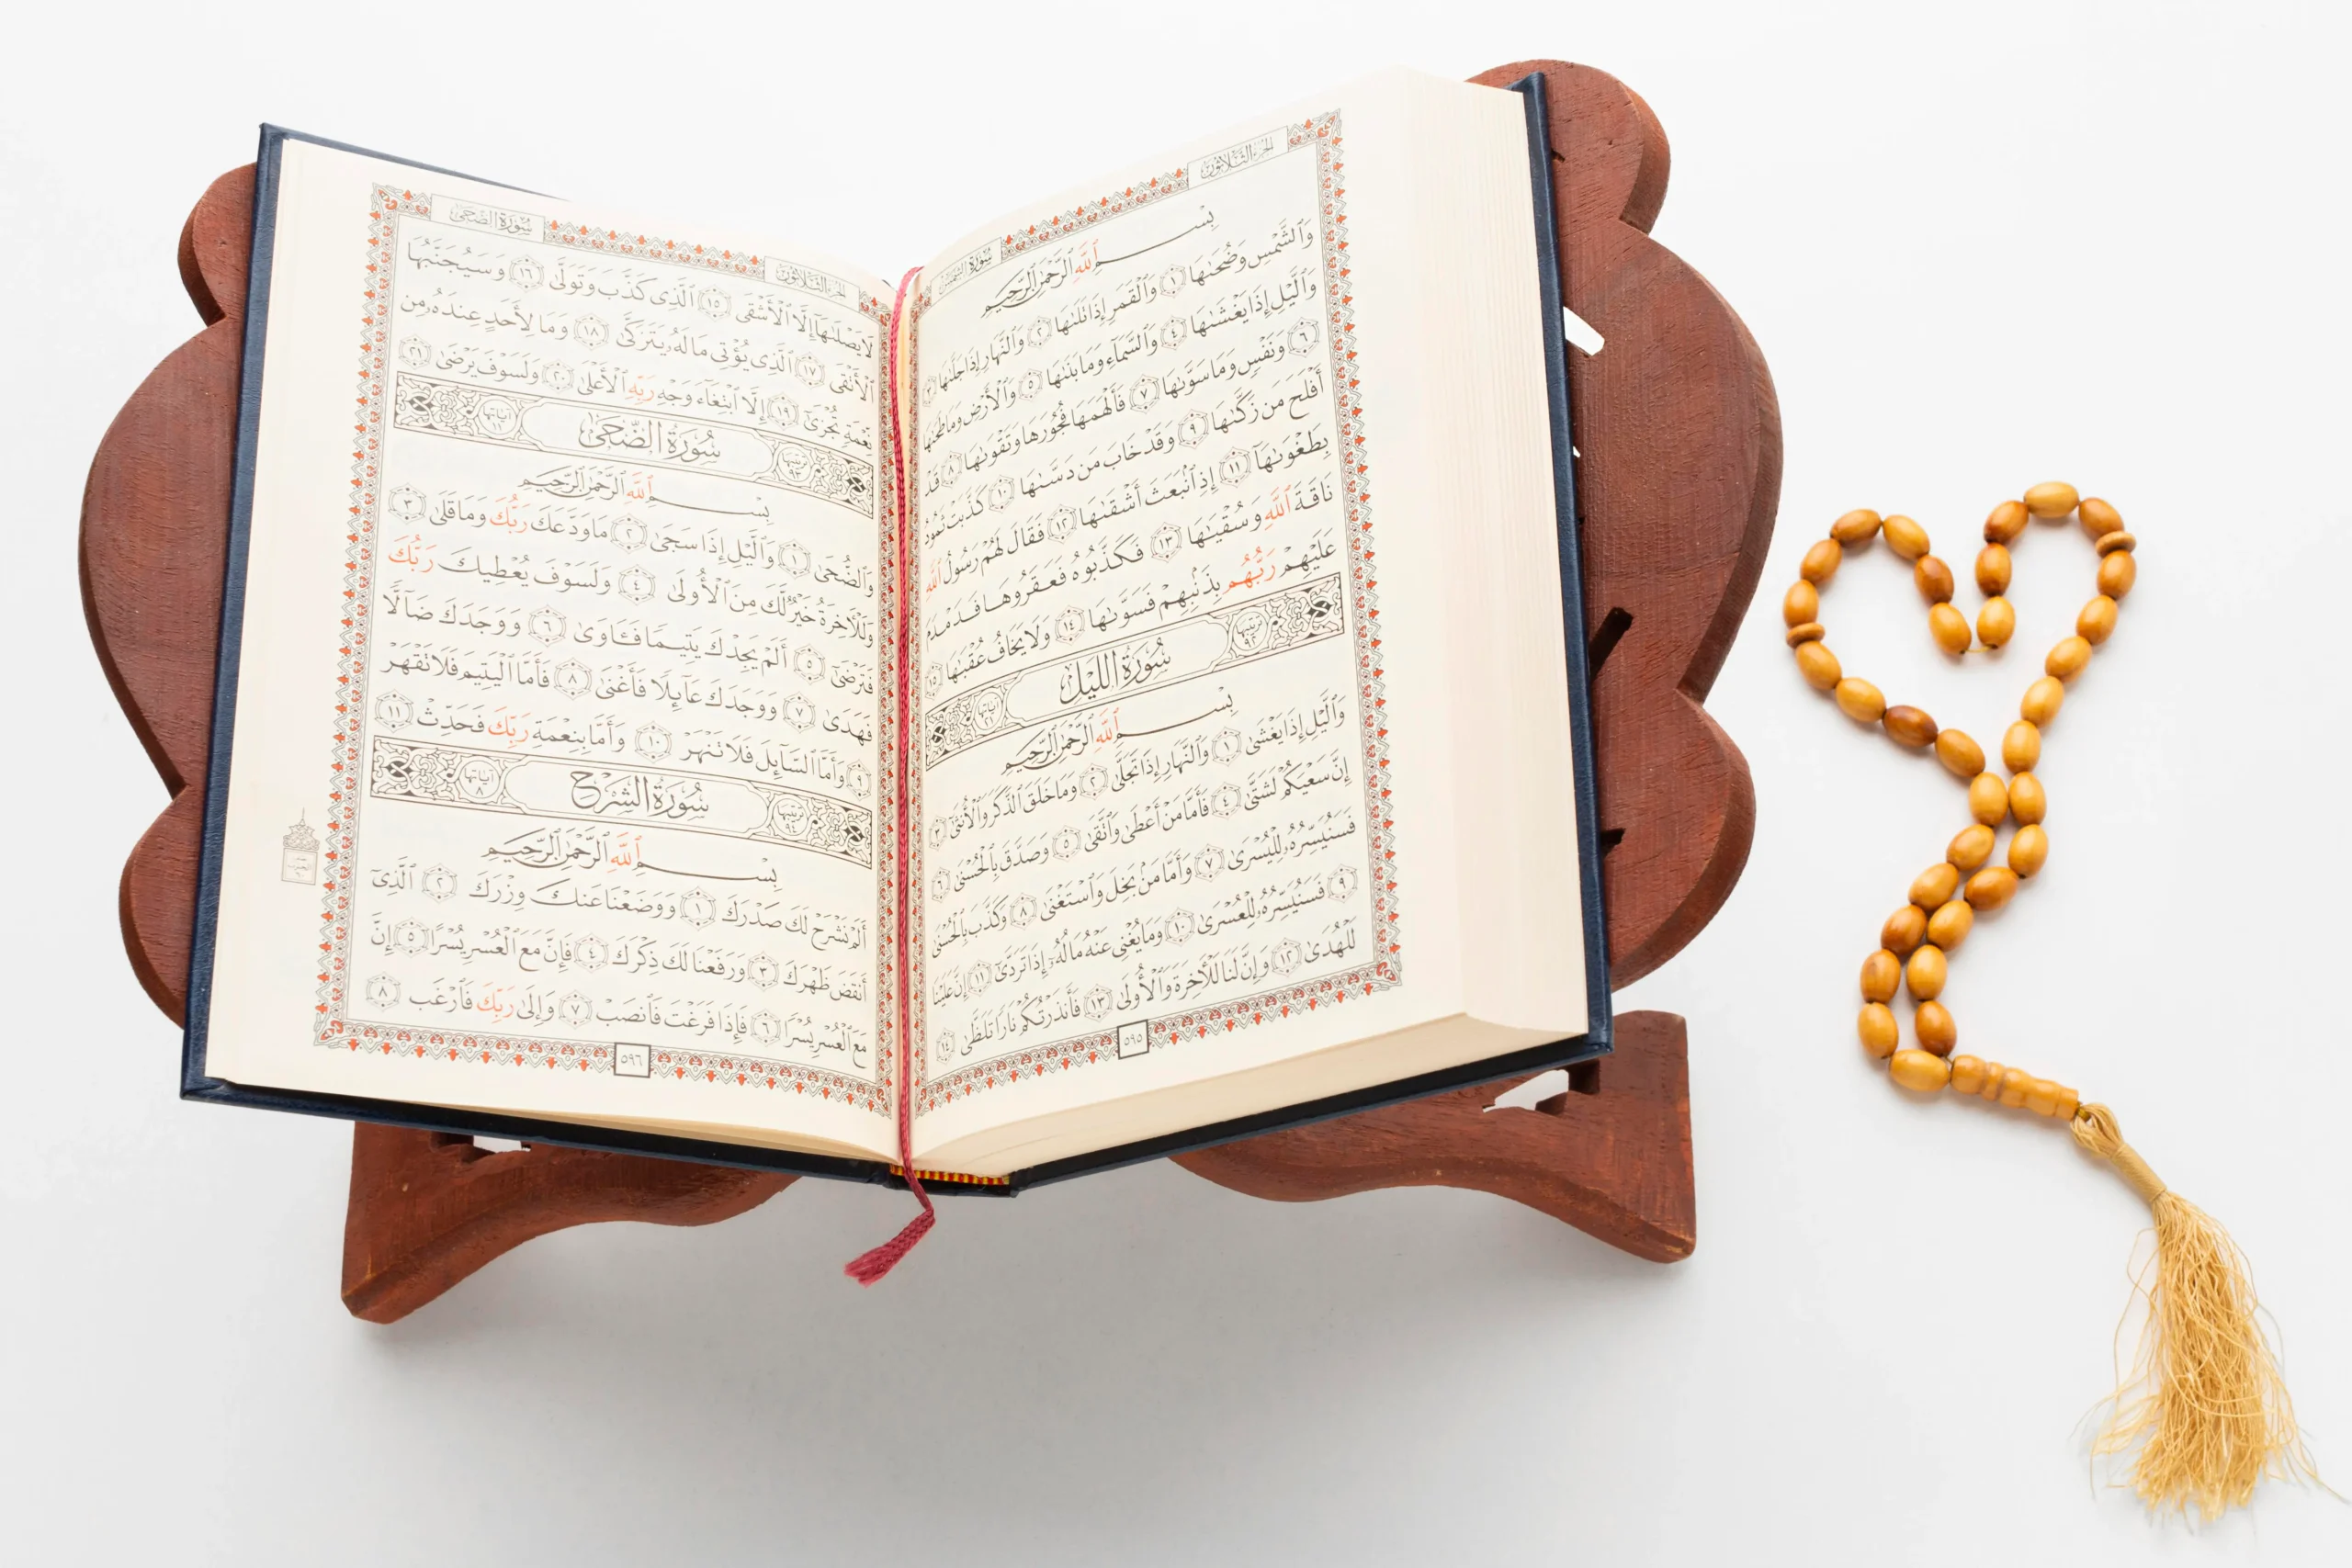 الجزء الثلاثون سُورَةُ الشَّمْسِ
بِسْمِ ٱللَّهِ ٱلرَّحْمَٰنِ ٱلرَّحِيمِ
وَٱلشَّمْسِ وَضُحَىٰهَا ١ وَٱلْقَمَرِ إِذَا تَلَىٰهَا ٢ وَٱلنَّهَارِ إِذَا جَلَّىٰهَا ٣
وَٱلَّيْلِ إِذَا يَغْشَىٰهَا ٤ وَٱلسَّمَآءِ وَمَا بَنَىٰهَا ٥ وَٱلْأَرْضِ وَمَا طَحَىٰهَا
٦ وَنَفْسٍ وَمَا سَوَّىٰهَا ٧ فَأَلْهَمَهَا فُجُورَهَا وَتَقْوَىٰهَا ٨ قَدْ
أَفْلَحَ مَن زَكَّىٰهَا ٩ وَقَدْ خَابَ مَن دَسَّىٰهَا ١٠ كَذَّبَتْ ثَمُودُ
بِطَغْوَىٰهَآ ١١ إِذِ ٱنۢبَعَثَ أَشْقَىٰهَا ١٢ فَقَالَ لَهُمْ رَسُولُ ٱللَّهِ
نَاقَةَ ٱللَّهِ وَسُقْيَٰهَا ١٣ فَكَذَّبُوهُ فَعَقَرُوهَا فَدَمْدَمَ
عَلَيْهِمْ رَبُّهُم بِذَنۢبِهِمْ فَسَوَّىٰهَا ١٤ وَلَا يَخَافُ عُقْبَٰهَا ١٥
ترتيبها ٩٢ سُورَةُ اللَّيْلِ آياتها ٢١
بِسْمِ ٱللَّهِ ٱلرَّحْمَٰنِ ٱلرَّحِيمِ
وَٱلَّيْلِ إِذَا يَغْشَىٰ ١ وَٱلنَّهَارِ إِذَا تَجَلَّىٰ ٢ وَمَا خَلَقَ ٱلذَّكَرَ وَٱلْأُنثَىٰٓ ٣
إِنَّ سَعْيَكُمْ لَشَتَّىٰ ٤ فَأَمَّا مَنْ أَعْطَىٰ وَٱتَّقَىٰ ٥ وَصَدَّقَ بِٱلْحُسْنَىٰ ٦
فَسَنُيَسِّرُهُۥ لِلْيُسْرَىٰ ٧ وَأَمَّا مَنۢ بَخِلَ وَٱسْتَغْنَىٰ ٨ وَكَذَّبَ بِٱلْحُسْنَىٰ
٩ فَسَنُيَسِّرُهُۥ لِلْعُسْرَىٰ ١٠ وَمَا يُغْنِى عَنْهُ مَالُهُۥٓ إِذَا تَرَدَّىٰٓ ١١ إِنَّ عَلَيْنَا
لَلْهُدَىٰ ١٢ وَإِنَّ لَنَا لَلْءَاخِرَةَ وَٱلْأُولَىٰ ١٣ فَأَنذَرْتُكُمْ نَارًا تَلَظَّىٰ ١٤
٥٩٥
الجزء الثلاثون سُورَةُ الضُّحَىٰ
لَا يَصْلَىٰهَآ إِلَّا ٱلْأَشْقَى ١٥ ٱلَّذِى كَذَّبَ وَتَوَلَّىٰ ١٦ وَسَيُجَنَّبُهَا
ٱلْأَتْقَى ١٧ ٱلَّذِى يُؤْتِى مَالَهُۥ يَتَزَكَّىٰ ١٨ وَمَا لِأَحَدٍ عِندَهُۥ مِن
نِّعْمَةٍ تُجْزَىٰٓ ١٩ إِلَّا ٱبْتِغَآءَ وَجْهِ رَبِّهِ ٱلْأَعْلَىٰ ٢٠ وَلَسَوْفَ يَرْضَىٰ ٢١
ترتيبها ٩٣ سُورَةُ الضُّحَىٰ آياتها ١١
بِسْمِ ٱللَّهِ ٱلرَّحْمَٰنِ ٱلرَّحِيمِ
وَٱلضُّحَىٰ ١ وَٱلَّيْلِ إِذَا سَجَىٰ ٢ مَا وَدَّعَكَ رَبُّكَ وَمَا قَلَىٰ ٣
وَلَلْءَاخِرَةُ خَيْرٌ لَّكَ مِنَ ٱلْأُولَىٰ ٤ وَلَسَوْفَ يُعْطِيكَ رَبُّكَ
فَتَرْضَىٰٓ ٥ أَلَمْ يَجِدْكَ يَتِيمًا فَـَٔاوَىٰ ٦ وَوَجَدَكَ ضَآلًّا
فَهَدَىٰ ٧ وَوَجَدَكَ عَآئِلًا فَأَغْنَىٰ ٨ فَأَمَّا ٱلْيَتِيمَ فَلَا تَقْهَرْ
٩ وَأَمَّا ٱلسَّآئِلَ فَلَا تَنْهَرْ ١٠ وَأَمَّا بِنِعْمَةِ رَبِّكَ فَحَدِّثْ ١١
ترتيبها ٩٤ سُورَةُ الشَّرْحِ آياتها ٨
بِسْمِ ٱللَّهِ ٱلرَّحْمَٰنِ ٱلرَّحِيمِ
أَلَمْ نَشْرَحْ لَكَ صَدْرَكَ ١ وَوَضَعْنَا عَنكَ وِزْرَكَ ٢ ٱلَّذِىٓ
أَنقَضَ ظَهْرَكَ ٣ وَرَفَعْنَا لَكَ ذِكْرَكَ ٤ فَإِنَّ مَعَ ٱلْعُسْرِ يُسْرًا ٥ إِنَّ
مَعَ ٱلْعُسْرِ يُسْرًا ٦ فَإِذَا فَرَغْتَ فَٱنصَبْ ٧ وَإِلَىٰ رَبِّكَ فَٱرْغَب ٨
٥٩٦